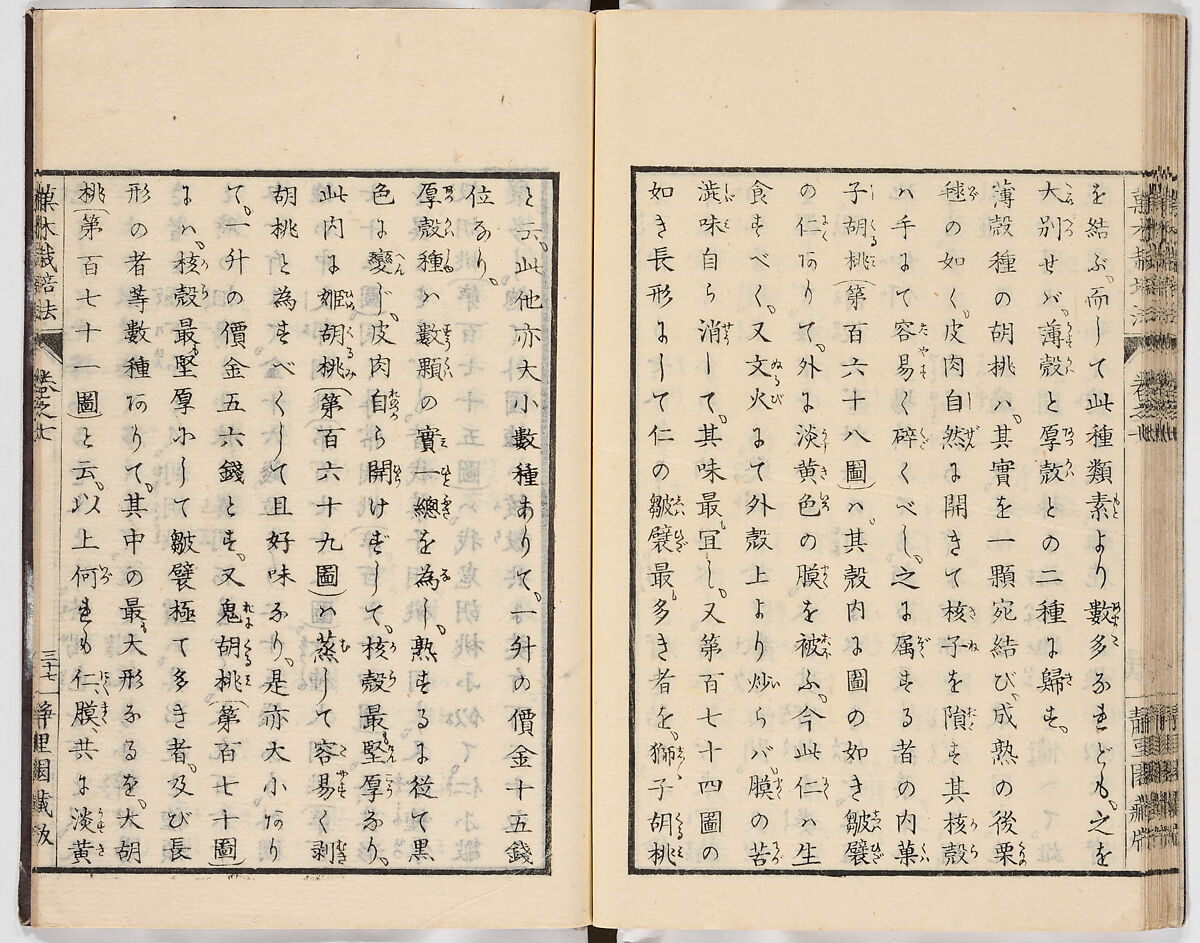 を結ぶ。而して此種類素より數多なれども、之を
大別せバ、薄殼と厚殼との二種に歸す。
薄殼種の胡桃ハ、其實を一顆宛結び、成熟の後栗
毬の如く、皮肉自然に開きて核子を隕す其核殼
ハ手にて容易く碎くべし、之に属する者の内菓
子胡桃(第百六十八圖)ハ、其殼内に圖の如き皺襞
の仁ありて、外に淡黄色の膜を被ふ、今此仁ハ生
食すべく、又文火にて外殼上より炒らバ、膜の苦
澁味自ら消して、其味最宜し、又第百七十四圖の
如き長形にして仁の皺襞最多き者を、獅子胡桃
と云、此他亦大小數種ありて、一升の價金十五錢
位なり。
厚殼種ハ數顆の實一總を為し、熟するに従て黒
色に變ず、皮肉自ら開けずして、核殼最堅厚なり、
此内に姫胡桃(第百六十九圖)ハ蒸して容易く剥
胡桃と為すべくして且好味なり、是亦大小あり
て、一升の價金五六錢とす、又鬼胡桃(第百七十圖)
にハ、核殼最堅厚にして皺襞極て多き者、及び長
形の者等數種ありて、其中の最大形なるを、大胡
桃(第百七十一圖)と云、以上何れも仁、膜、共に淡黄
菓木栽培法
卷之七
三十七
静里園蔵版